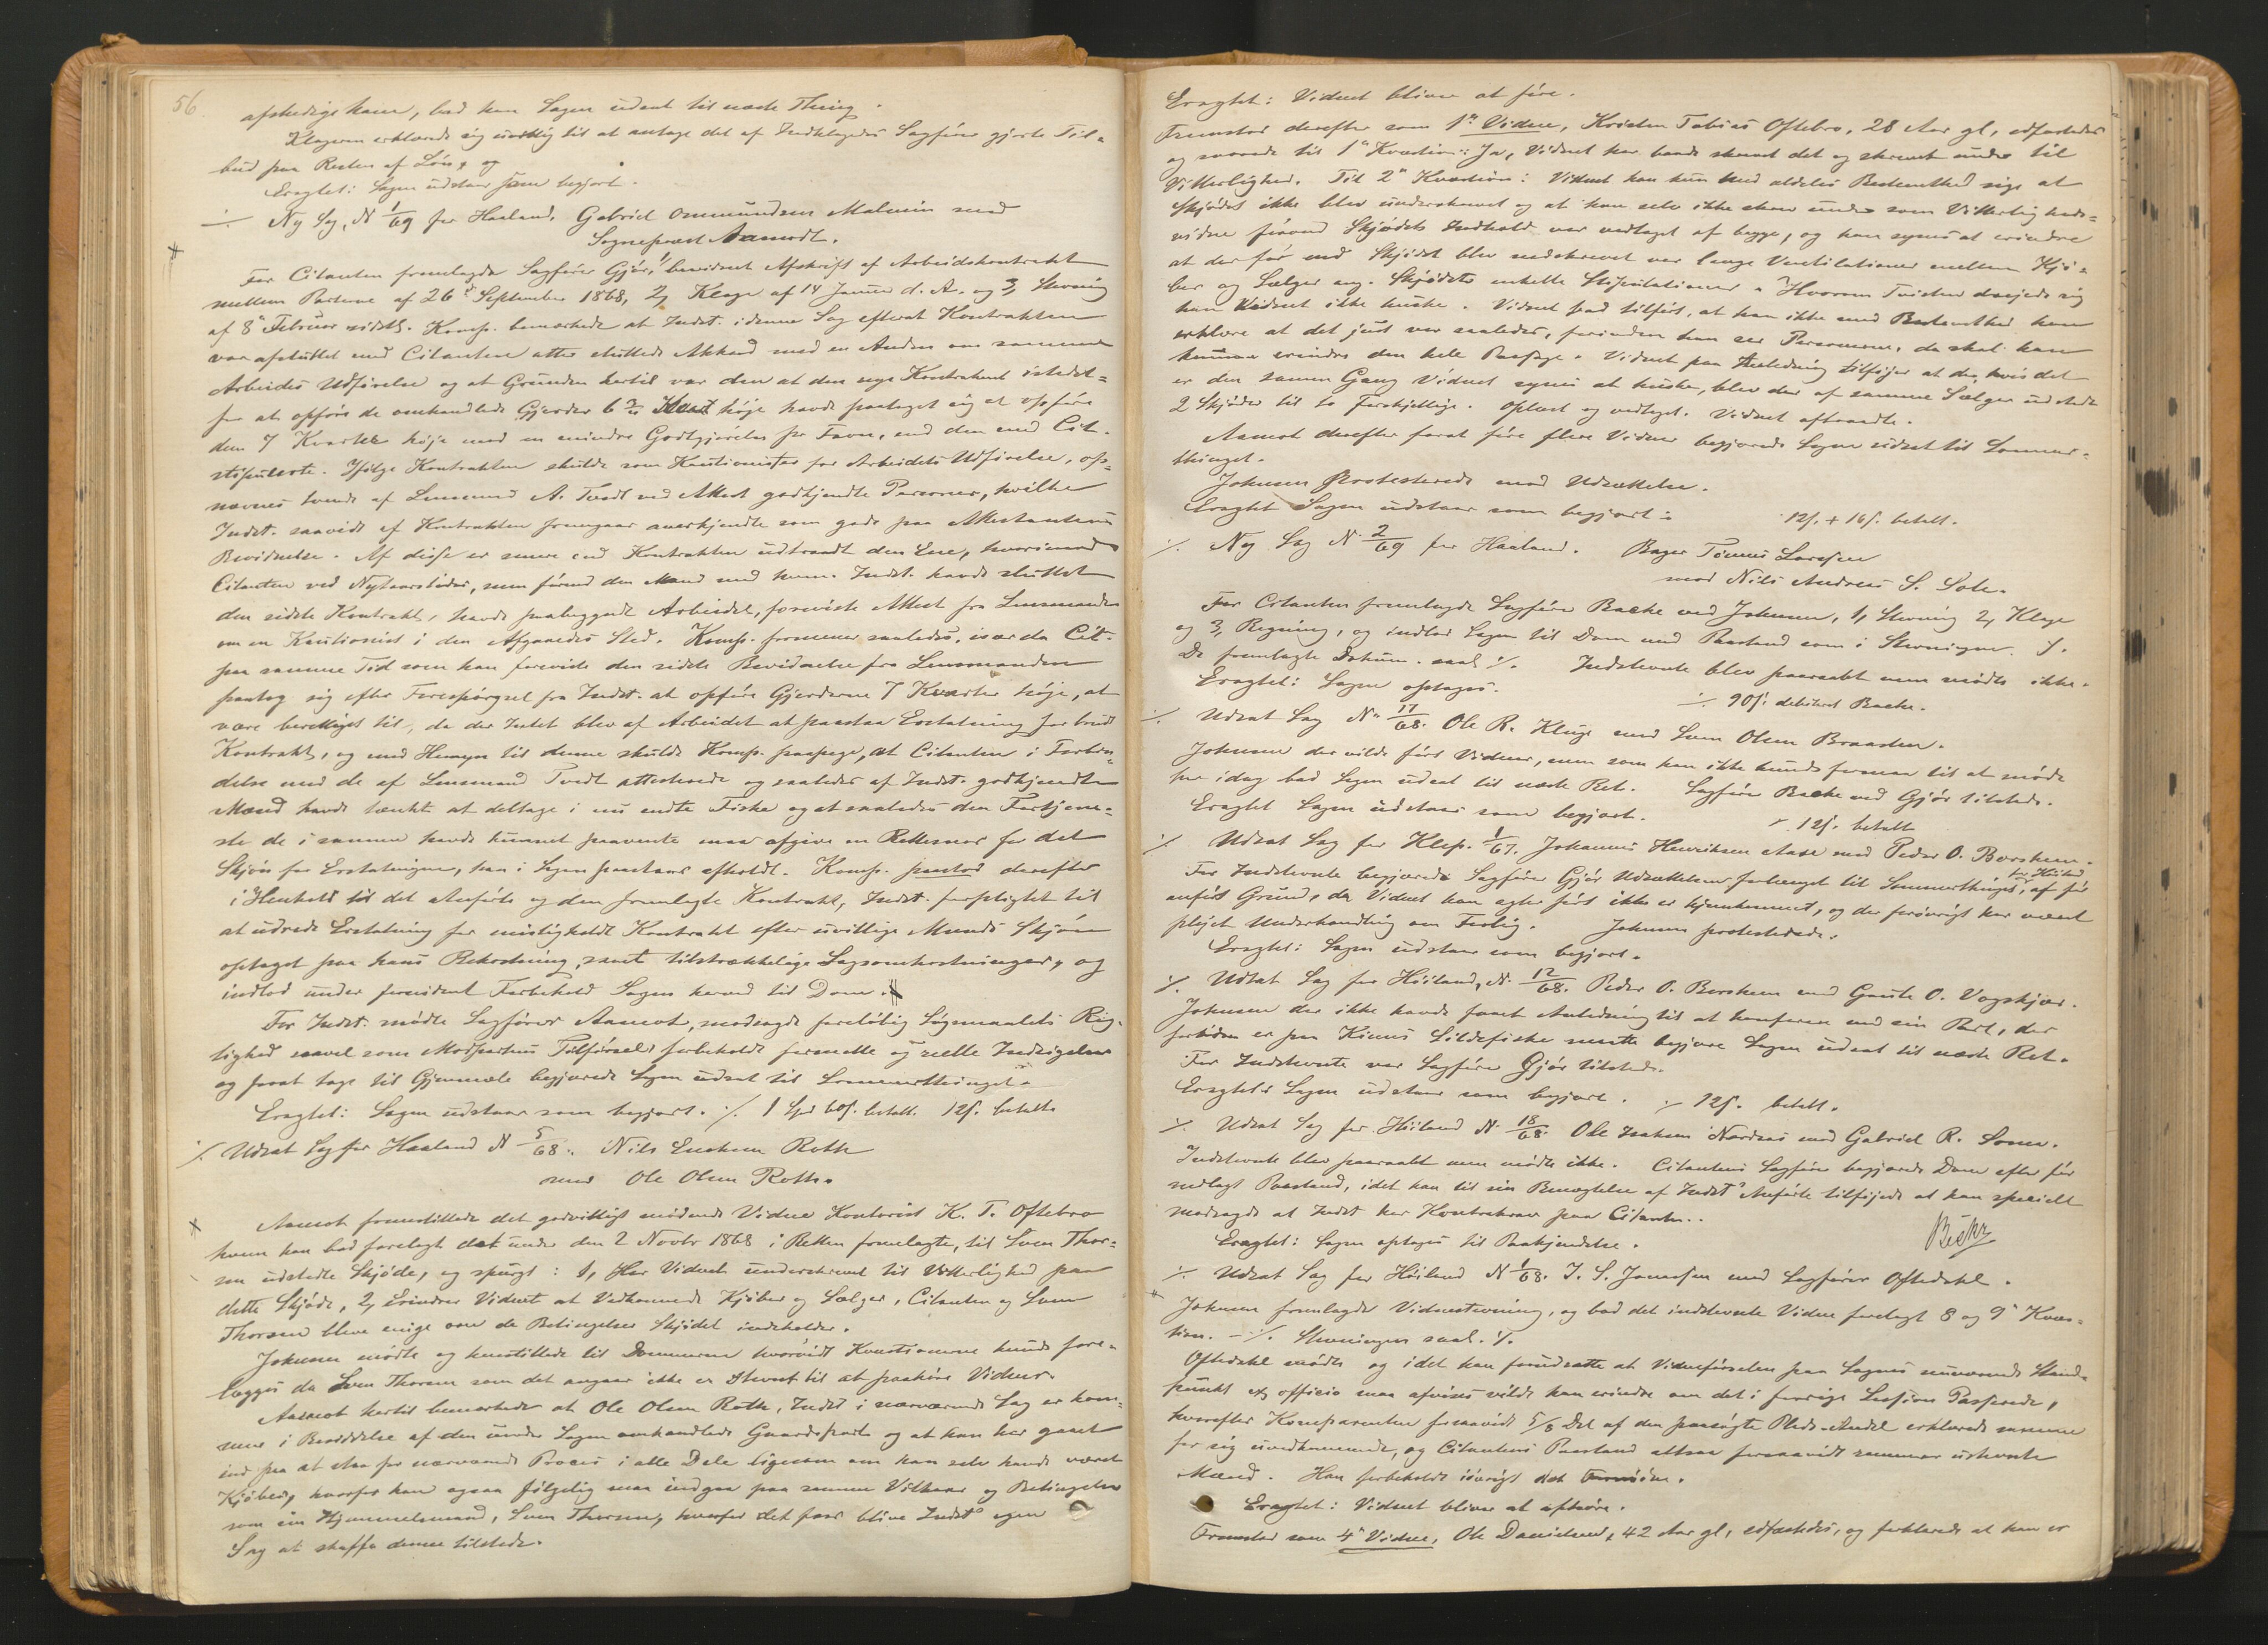 56
afskedige ham, bad han Sagen udsat til næste Thing.
Klageren erklærede sig uvillig til at antage det af Indklagedes Sagfører gjorte Til-
bud paa Resten af Løn, og
Eragtet: Sagen udstaar som begjært.
Ny Sag, N 1/69 for Haaland. Gabriel Ommundsen Malmin mod
Sognepræst Aamodt.
For Citanten fremlagde Sagfører Gjør: 1, bevidnet Afskrift af Arbeidskontrakt
mellem Parterne af 26d September 1868, 2, Klage af 14 Januar d. A. og 3, Stevning
af 8de Februar sidstl. Komp. bemærkede at Indst. i denne Sag efterat Kontrakten
var afsluttet med Citanten atter sluttede Akkord med en Anden om samme
Arbeides Udførelse og at Grunden hertil var den at den nye Kontrahent istedet-
for at opføre de omhandlede Gjerder 6 Kvart høje havde paataget sig at opføre
dem 7 Kvarter høje med en mindre Godtgjørelse pr Favn, end den med Cit.
stipulerte. Ifølge Kontrakten skulde som Kautionister for Arbeidets Udførelse, op-
nævnes tvende af Lensmand A. Tvedt ved Attest godkjendte Personer, hvilke
Indst. saavidt af Kontrakten fremgaar anerkjendte som gode paa Attestantens
Bevidnelse. Af disse er senere end Kontrakten udtraadt den Ene, hvorimod
Citanten ved Nytaarstider, men førend den Mand med hvem Indst. havde sluttet
den sidste Kontrakt, havde paabegyndt Arbeidet, foreviste Attest fra Lensmanden
om en Kautionist i den Afgaaedes Sted. Komp. formener saaledes, især da Cit.
paa samme Tid som han foreviste den sidste Bevidnelse fra Lensmanden
paatog sig efter Forespørgsel fra Indst. at opføre Gjerderne 7 Kvarter høje, at
være berettiget til, da der Intet blev af Arbeidet at paastaa Erstatning for brudt
Kontrakt, og med Hensyn til denne skulde Komp. paapege, at Citanten i Forbin-
delse med de af Lensmand Tvedt attesterede og saaledes af Indst. godkjendte
Mænd havde tænkt at deltage i nu endte Fiske og at saaledes den Fortjene-
ste de i samme havde kunnet paavente maa afgive en Rettesnor for det
Skjøn for Erstatningen, han i Sagen paastaar afholdt. Komp. paastod derefter
i Henhold til det Anførte og den fremlagte Kontrakt, Indst. forpligtet til
at udrede Erstatning for misligholdt Kontrakt efter uvillige Mænds Skjøn
optaget paa hans Bekostning, samt tilstrækkelige Sagsomkostninger, og
indlod under fornødent Forbehold Sagen herved til Dom.
For Indst. mødte Sagfører Aamot, modsagde foreløbig Søgsmaalets Rig-
tighed saavel som Modpartens Tilførsel, forbeholdt formelle og reelle Indsigelser
og forat tage til Gjenmæle begjærede Sagen udsat til Sommerthinget.
Eragtet: Sagen udstaar som begjært. 1 Spd 60s. betalt. 12s. betalt.
Udsat Sag for Haaland N 5/68. Nils Enoksen Roth
mod Ole Olsen Roth.
Aamot fremstillede det godvilligt mødende Vidne Kontorist K. T. Oftebro
hvem han bad forelagt det under den 2 Novbr 1868 i Retten fremlagte, til Sven Thor-
sen udstedte Skjøde, og spurgt: 1, Har Vidnet underskrevet til Vitterlighed paa
dette Skjøde, 2, Erindrer Vidnet at Vedkommende Kjøber og Sælger, Citanten og Sven
Thorsen bleve enige om de Betingelser Skjødet indeholder.
Johnsen mødte og henstillede til Dommeren hvorvidt Kvæstionerne kunde fore-
lægges da Sven Thorsen som det angaar ikke er stevnt til at paahøre Vidner.
Aamot hertil bemærkede at Ole Olsen Roth, Indst i nærværende Sag er kom-
men i Besiddelse af den under Sagen omhandlede Gaardspart og at han har gaaet
ind paa at staa for nærværende Proces i alle Dele ligesom om han selv havde været
Kjøber, hvorfor han ogsaa følgelig maa indgaa paa samme Vilkaar og Betingelser
som sin Hjemmelsmand, Sven Thorsen, hvorfor det faar blive Indsts egen
Sag at skaffe denne tilstede.
Eragtet: Vidnet bliver at føre.
Fremstod derefter som 1ste Vidne, Kristen Tobias Oftebro, 28 Aar gl, edfæstedes
og svarede til 1ste Kvæstion: Ja, Vidnet har baade skrevet det og skrevet under til
Vitterlighed. Til 2den Kvæstion: Vidnet kan kun med aldeles Bestemthed sige at
Skjødet ikke blev underskrevet og at han selv ikke skrev under som Vitterligheds-
vidne førend Skjødets Indhold var vedtaget af begge, og han synes at erindre
at der før end Skjødet blev nedskrevet var lange Ventilationer mellem Kjø-
ber og Sælger ang. Skjødets enkelte Stipulationer. Hvorom Tvisten dreiede sig
kan Vidnet ikke huske. Vidnet bad tilført, at han ikke med Bestemthed kan
erklære at det just var saaledes, forinden han ser Personerne, da skal han
kunne erindre den hele Passage. Vidnet paa Anledning tilføjer at der, hvis det
er den samme Gang Vidnet synes at huske, blev der af samme Sælger udstedt
2 Skjøder til to Forskjellige. Oplæst og vedtaget. Vidnet aftraadte.
Aamot derefter forat føre flere Vidner begjærede Sagen udsat til Sommer-
thinget.
Johnsen Protesterede mod Udsættelse.
Eragtet Sagen udstaar som begjært. 12s. + 16s. betalt.
Ny Sag N 2/69 for Haaland. Bager Tønnes Larsen
mod Nils Andreas S. Sole.
For Citanten fremlagde Sagfører Backe ved Johnsen, 1, Stevning 2, Klage
og 3, Regning, og indlod Sagen til Dom med Paastand som i Stevningen.
De fremlagte Dokum. saal. Indstevnte blev paaraabt men mødte ikke.
Eragtet: Sagen optages.
90s. debiteret Backe.
Udsat Sag N 17/68. Ole R. Kluge mod Sven Olsen Braasten.
Johnsen der vilde føre Vidner, men som han ikke kunde formaa til at møde
her idag bad Sagen udsat til næste Ret. Sagfører Backe ved Gjør tilstede.
Eragtet Sagen udstaar som begjært. 12s. betalt
Udsat Sag for Klep. 1/67. Johannes Henriksen Aase mod Peder O. Borshem.
For Indstevnte begjærede Sagfører Gjør Udsættelsen forlænget til Sommerthinget for Høiland, af før
anført Grund, da Vidnet han agter ført ikke er hjemkommet, og der forøvrigt har været
pleiet Underhandling om Forlig. Johnsen protesterede.
Eragtet: Sagen udstaar som begjært.
Udsat Sag for Høiland, N. 12/68. Peder O. Borshem mod Gaute O. Vagskjær.
Johnsen der ikke havde faaet Anledning til at konferere med sin Part, der
fortiden er paa Kinns Sildefiske maatte begjære Sagen udsat til næste Ret.
For Indstevnte var Sagfører Gjør tilstede.
Eragtet: Sagen udstaar som begjært. 12s. betalt.
Udsat Sag for Høiland N 18/68. Ole Isaksen Nordraas mod Gabriel R. Some.
Indstevnte blev paaraabt men mødte ikke. Citantens Sagfører begjærede Dom efter før
nedlagt Paastand, idet han til sin Benægtelse af Indsts Anførte tilføjede at han specielt
modsagde at Indst har Kontrakrav paa Citanten.
Eragtet: Sagen optages til Paakjendelse.
Udsat Sag for Høiland N 1/68. T. S. Jonassen mod Sagfører Oftedahl.
Johnsen fremlagde Vidnestevning, og bad det indstevnte Vidne forelagt 8 og 9de Kvæs-
tion. Stevningen saal.
Oftedahl mødte og idet han forudsatte at Vidneførselen paa Sagens nuværende Stand-
punkt ex officio maa afvises vilde han erindre om det i forrige Session Passerede,
hvorefter Komparenten forsaavidt 5/8 Del af den paasøgte Andel erklærede samme
for sig uvedkommende, og Citantens Paastand altsaa forsaavidt rammer ustevnte
Mænd. Han forbeholdt iøvrigt det Fornødne.
Eragtet: Vidnet bliver at afhøre.
Fremstod som 4de Vidne, Ole Danielsen, 42 Aar gl, edfæstedes, og forklarede at han er